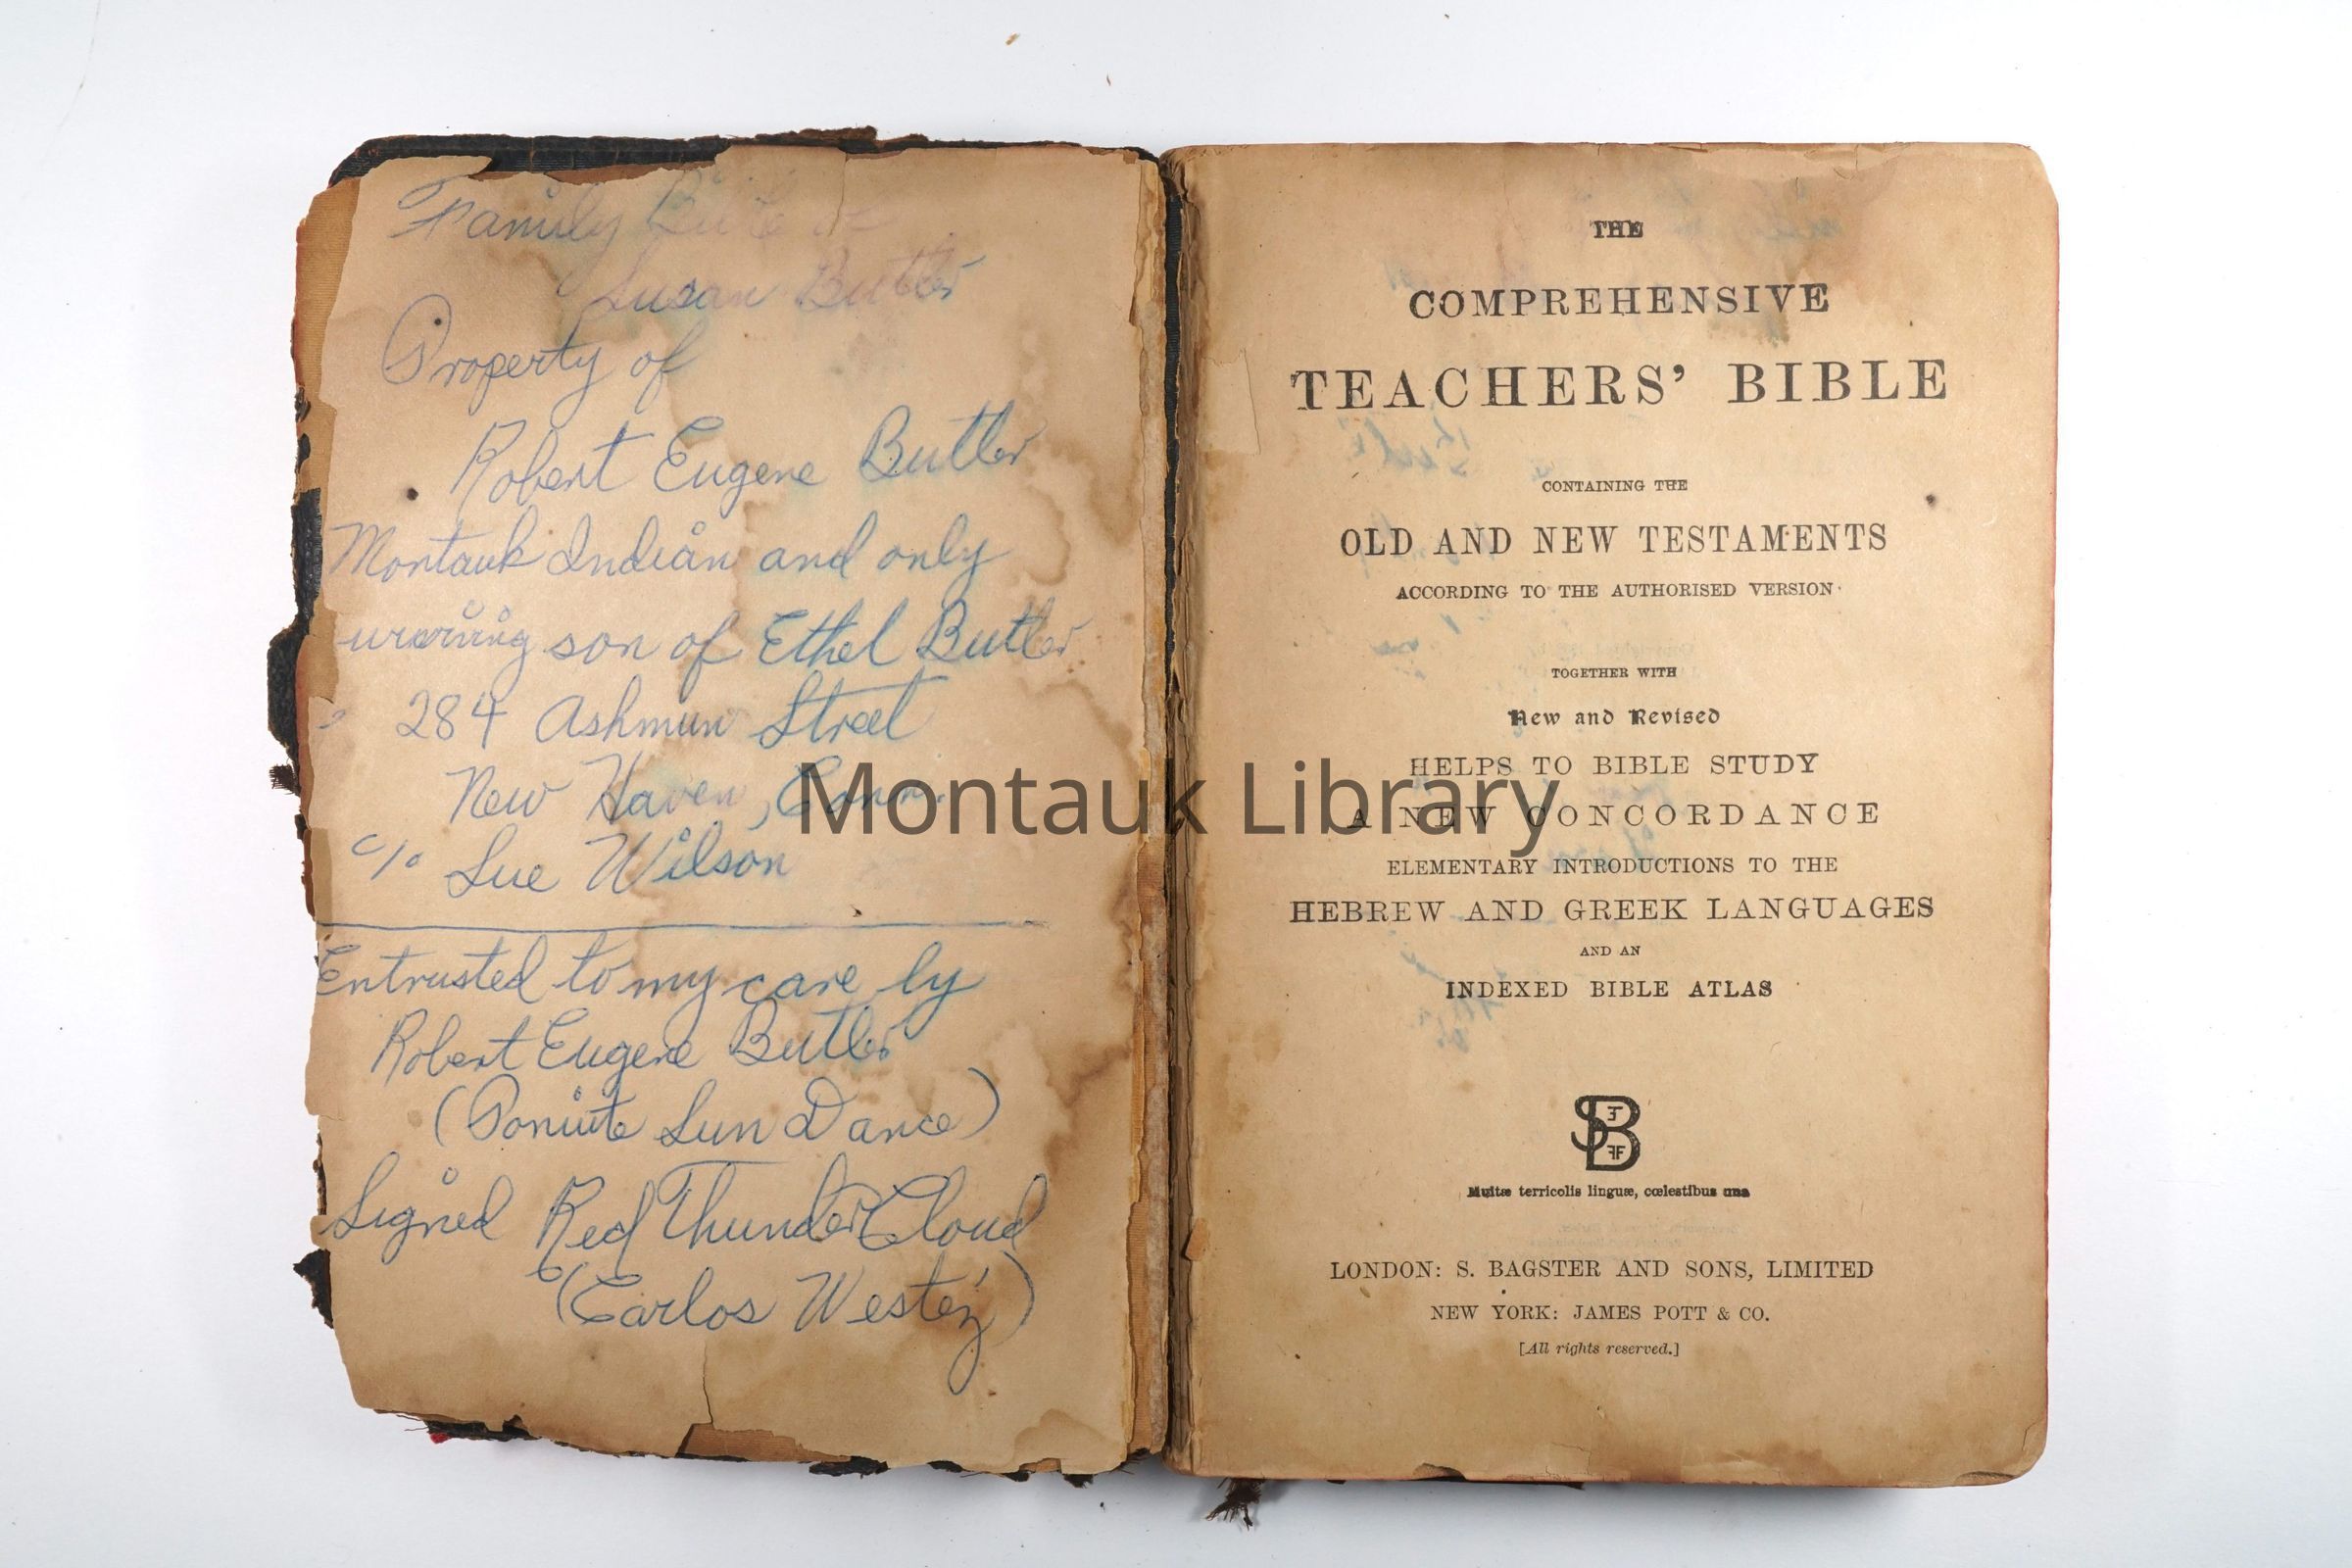 Family Bible of
Susan Butler
Property of
Robert Eugene Butler
Montauk Indian and only
urviving son of Ethel Butler
284 Ashmun Street
New Haven, Conn.
c/o Sue Wilson
Entrusted to my care by
Robert Eugene Butler
(Poniute Sun Dance)
Signed Red ThunderCloud
(Carlos Westéz)
THE
COMPREHENSIVE
TEACHERS' BIBLE
CONTAINING THE
OLD AND NEW TESTAMENTS
ACCORDING TO THE AUTHORISED VERSION
TOGETHER WITH
New and Revised
HELPS TO BIBLE STUDY
A NEW CONCORDANCE
ELEMENTARY INTRODUCTIONS TO THE
HEBREW AND GREEK LANGUAGES
AND AN
INDEXED BIBLE ATLAS
SB
Multæ terricolis linguæ, cœlestibus una
LONDON: S. BAGSTER AND SONS, LIMITED
NEW YORK: JAMES POTT & CO.
[All rights reserved.]
Montauk Library